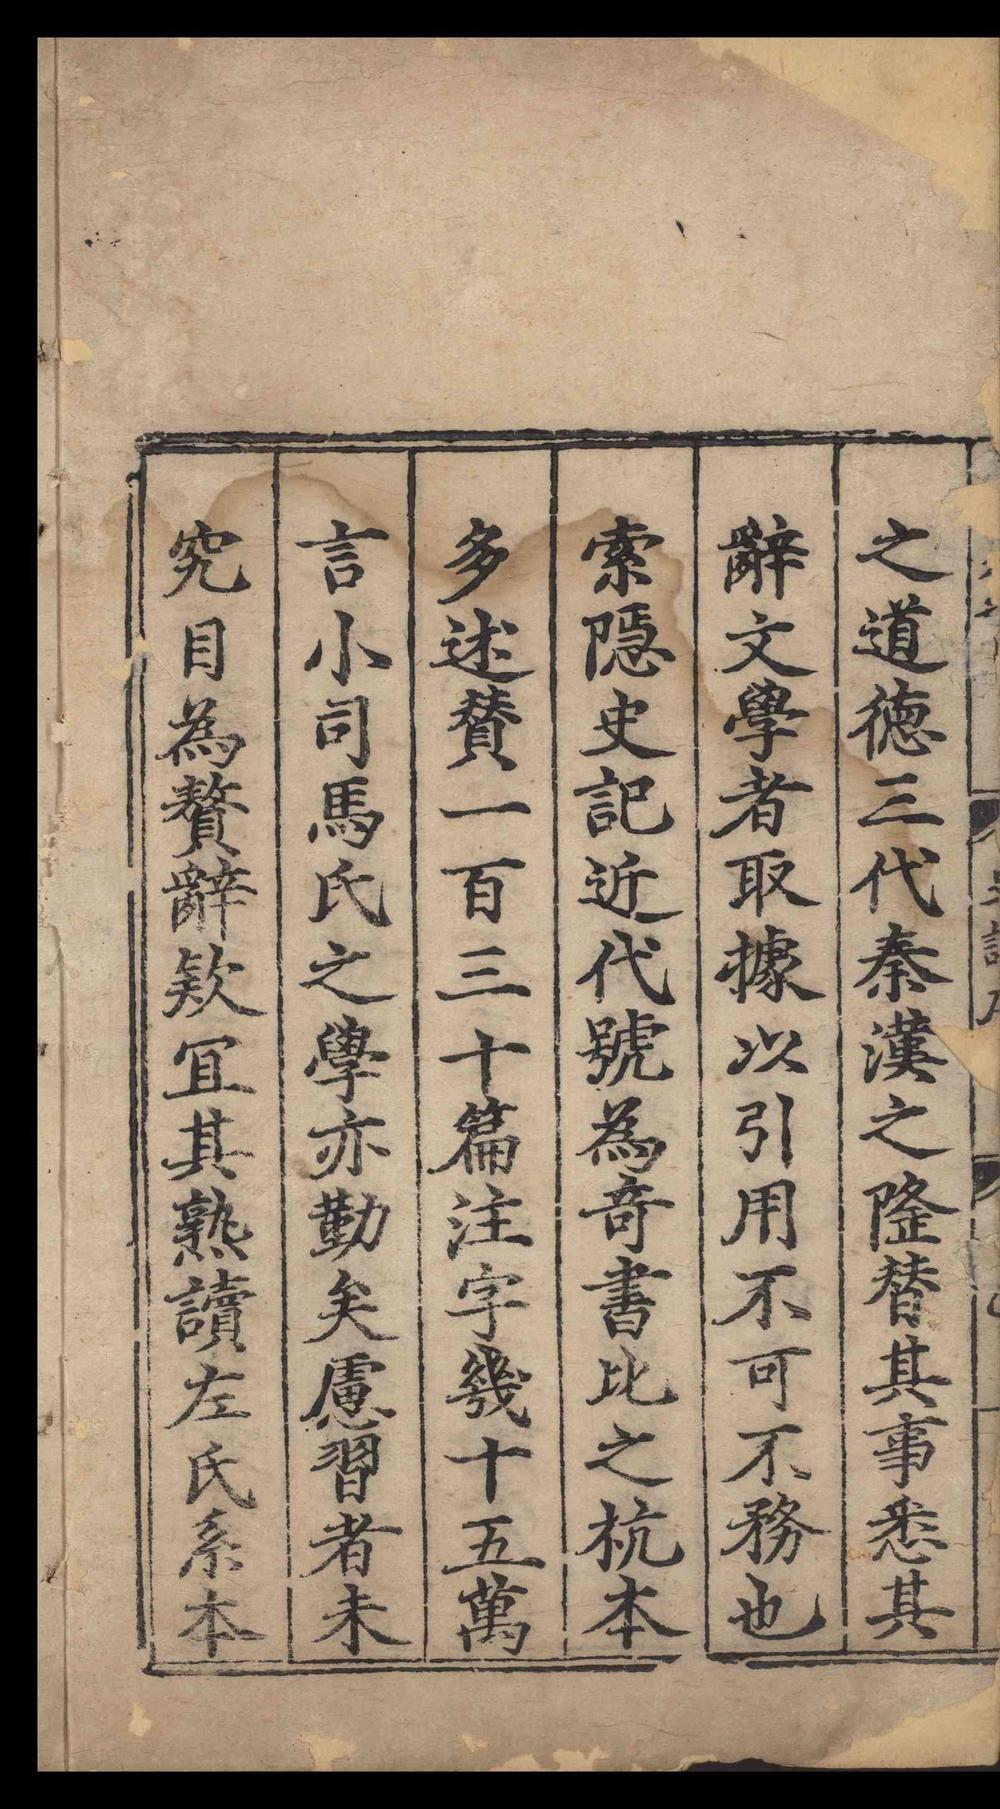 之道德三代秦漢之隆替其事悉其
辭文學者取據以引用不可不務也
索隱史記近代號為竒書比之杭本
多述賛一百三十篇注字幾十五萬
言小司馬氏之學亦勤矣慮習者未
究目為贅辭欵冝其熟讀左氏系本